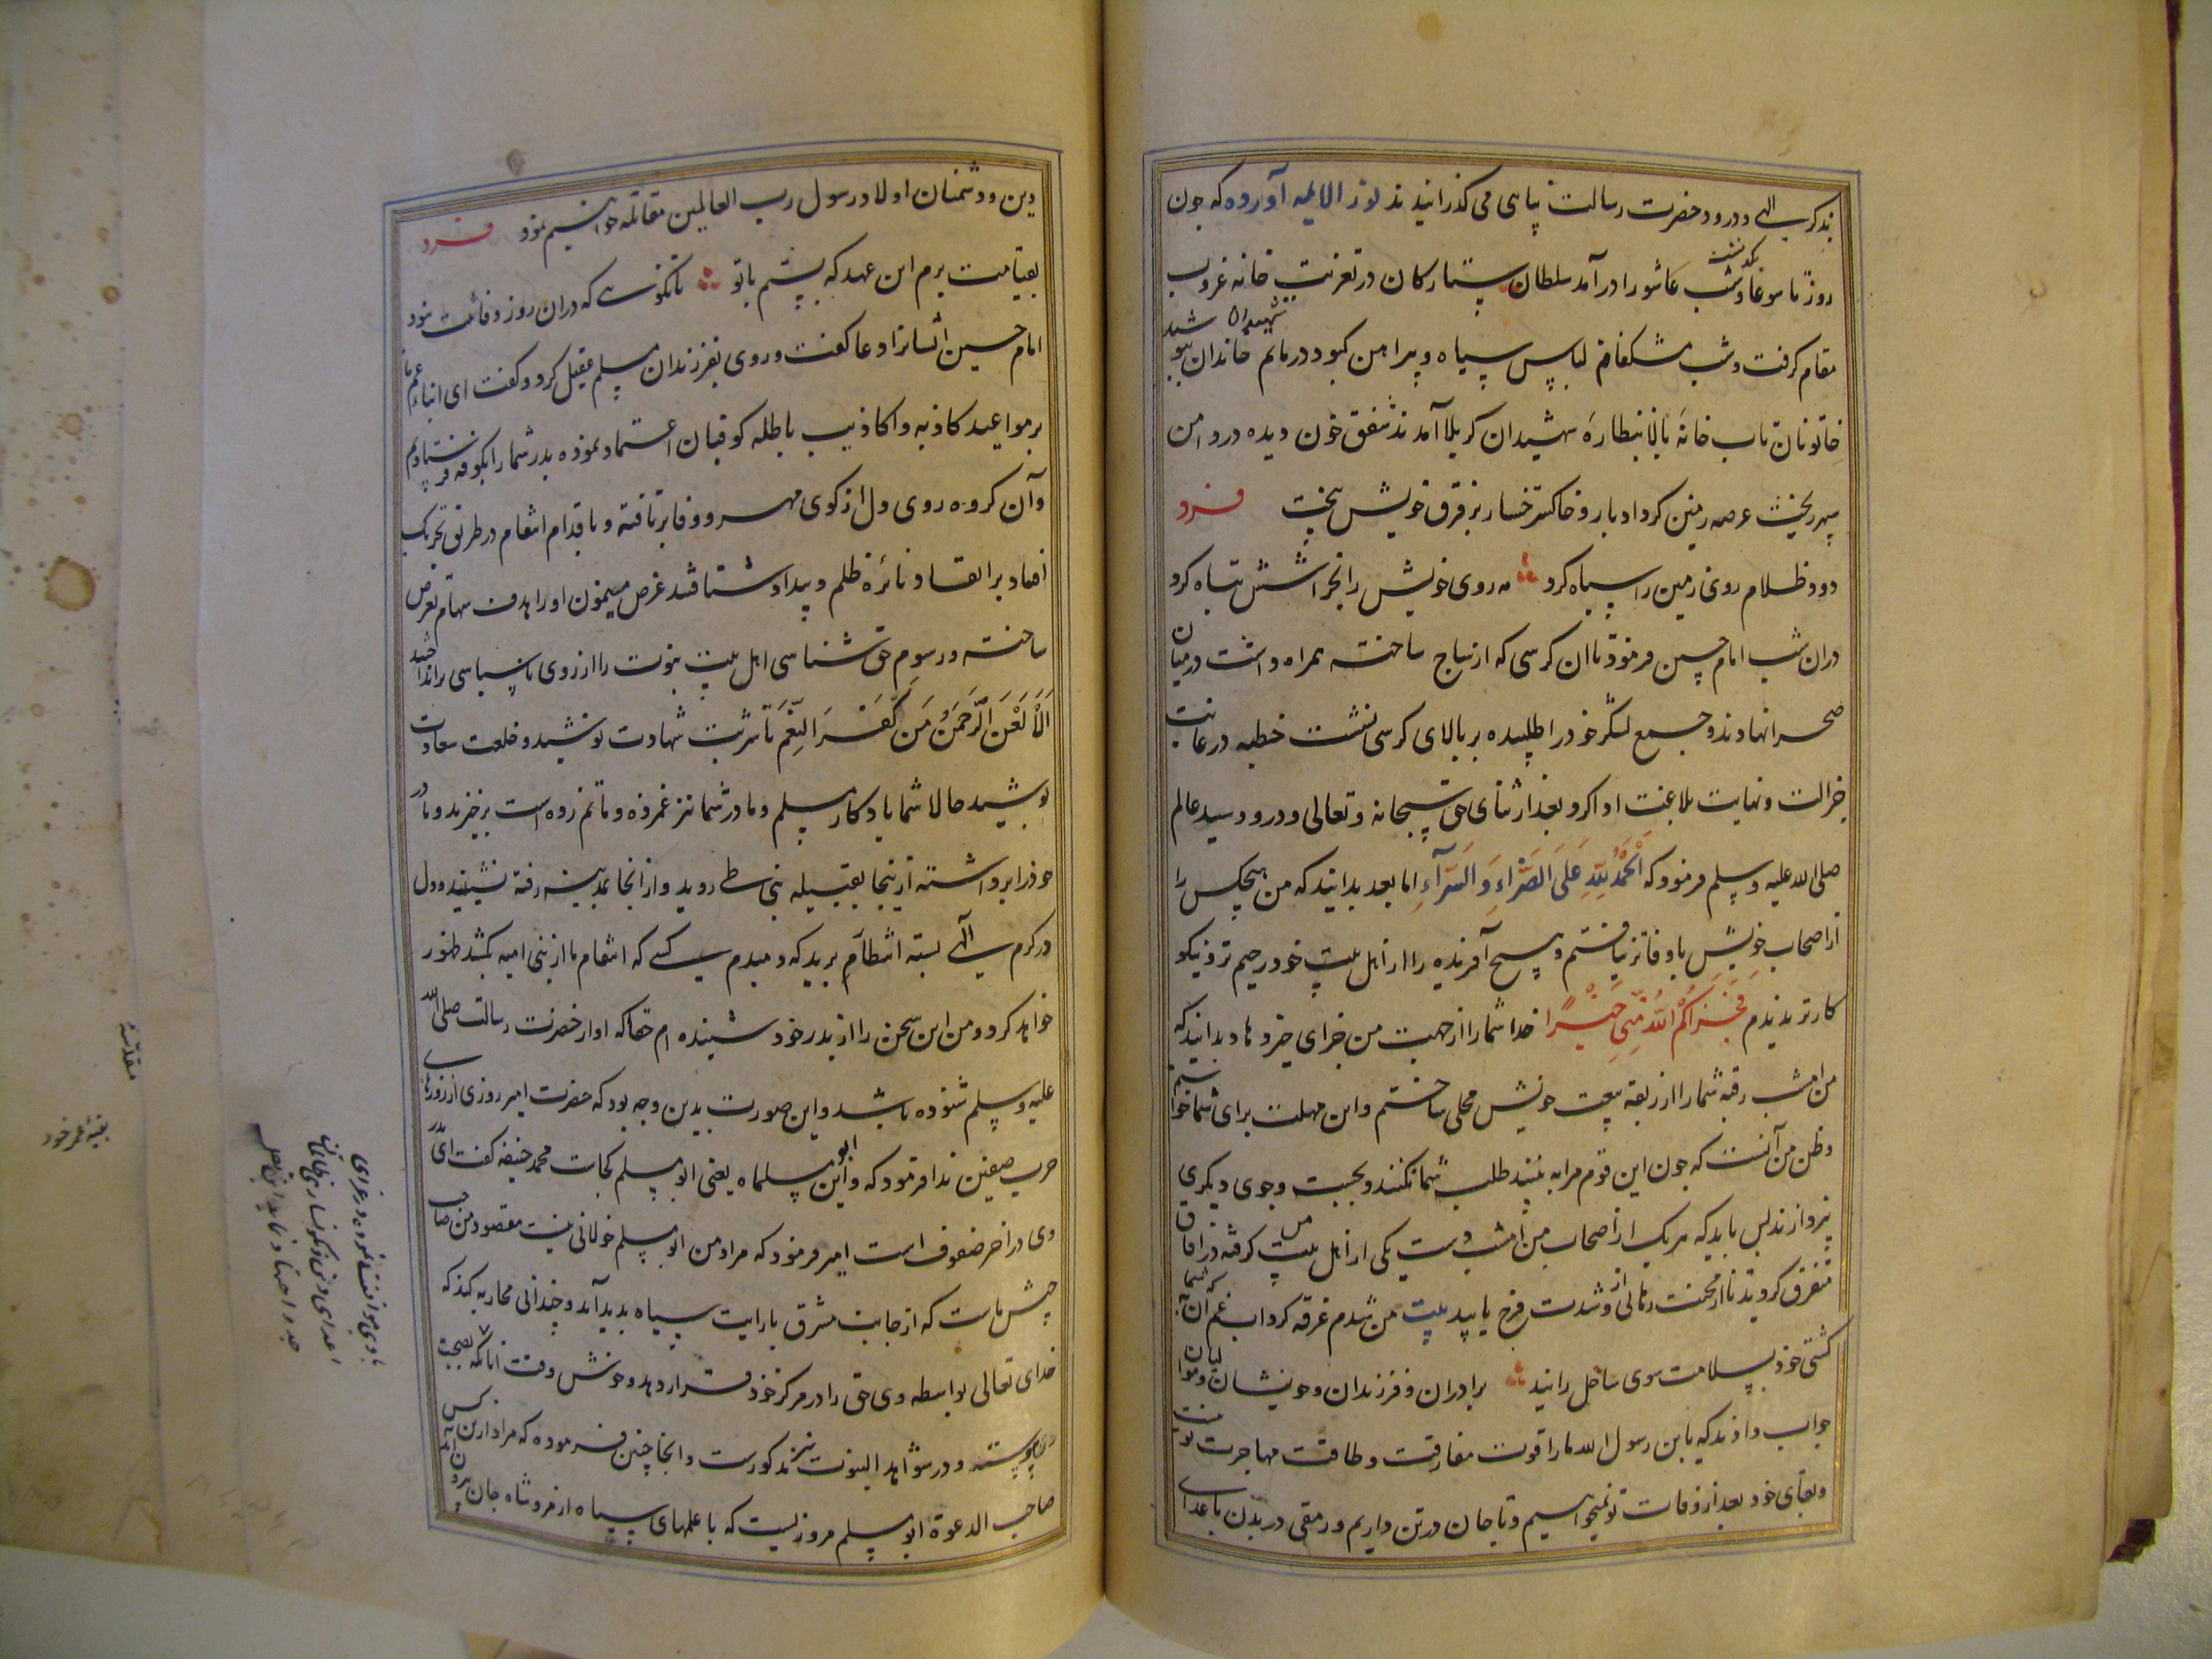 بذکر الهی و درود حضرت رسالت پناهی می کذرانیدند نور الایمه آورده که چون
روز تاسوعا بگذشت و شب عاشورا درآمد سلطان ستارکان در تعزیت خانه غروب
مقام کرفت و شب مشکفام لباس سیاه و پیراهن کبود در ماتم خاندان شهیدان پوشید
خاتونان تاب خانهٔ بالا بنظارهٔ شهیدان کربلا آمدند شفق خون دیده در دامن
سپهر ریخت عرصه زمین کرد ادبار و خاکستر خسار بر فرق خویش بیخت فرد
دود ظلام روی زمین را سیاه کرد مه روی خویش را بخراشش تباه کرد
دران شب امام حسین فرمود تا ان کرسی که از ساج ساخته همراه داشت در میان
صحرا نهادند و جمیع لشکر خود را طلبیده بر بالای کرسی نشست خطبه در غایت
جزالت و نهایت بلاغت ادا کرد بعد از ثنای حق سبحانه و تعالی و درود سید عالم
صلی الله علیه وسلم فرمود که اَلْحَمْدُ لِلّٰهِ عَلَی الضَّرَّاءِ وَ السَّرَّآءِ اما بعد بدانید که من هیچکس را
از اصحاب خویش باوفاتر نیافتم و هیچ آفریده را از اهل بیت خود رحیم تر و نیکو
کارتر ندیدم فَجَزَاکُمُ اللهُ مِنّی خَیْرًا خدا شما را از جهت من جزای خیر دهاد و بدانید که
من امشب رقبه شما را از ربقه بیعت خویش محلی ساختم و این مهلت برای شما خواستم
و ظن من آنست که چون این قوم مرا به بینند طلب شما نکنند و بجست و جوی دیگری
نپردازند پس باید که هر یک از اصحاب من امشب دست یکی از اهل بیت من کرفته در آفاق
متفرق کردید تا از محنت رهائی و از شدت فرج یابید بیت من شدم غرقه کرداب غم آن به که شما
کشتی خود بسلامت سوی ساحل رانید برادران و فرزندان و خویشان و موالیان
جواب دادند که یا بن رسول الله ما را قوت مفارقت و طاقت مهاجرت تو نیست
و بقای خود بعد از وفات تو نمیخواهیم و تا جان در تن داریم و رمقی در بدن با اعدای
دین و دشمنان اولاد رسول رب العالمین مقاتله خواهیم نمود فرد
بقیامت برم این عهد که بستم با تو تا نکوئی که دران روز وفائت نبود
امام حسین ایشانرا دعا گفت و روی بفرزندان مسلم عقیل کرد و گفت ای ابناء عم ما
بر مواعید کاذبه و اکاذیب باطله کوفیان اعتماد نموده پدر شما را بکوفه فرستادیم
و آن گروه روی دل از کوی مهر و وفا برتافته و باقدام انتقام در طریق تحریک
افساد بر ایقاد نائره ظلم و بیداد شتافتند عرض میمون او را هدف سهام تعرض
ساخته و رسوم حق شناسی اهل بیت نبوت را از روی ناسپاسی برانداختند
اَلَا لَعَنَ الرَّحْمٰنُ مَنْ کَفَرَ النِّعَم تا شربت شهادت نوشید و خلعت سعادت
پوشید حالا شما یادکار مسلم و مادر شما نیز غمزده و ماتم زده است برخیزید و مادر
خود را برداشته از ینجا بقبیله بنی طی روید و از انجا بمدینه رفته نشینید و دل
در کرم الهی بسته انتظام برید که دمبدم کسی که انتقام ما از بنی امیه بکشد ظهور
خواهد کرد و من این سخن را از پدر خود شنیده ام حقا که او از حضرت رسالت صلی الله
علیه وسلم شنوده باشد و این صورت بدین وجه بود که حضرت امیر روزی از روزهای
حرب صفین ندا فرمود که و این ابو مسلماه یعنی ابو مسلم کجاست محمد حنیفه گفت ای پدر
وی در اخر صفوف است امیر فرمود که مراد من ابو مسلم خولانی نیست مقصود من صاحب
جیش ماست که از جانب مشرق با رایت سیاه پدید آید و چندانی محاربه کند که
خدای تعالی بواسطه وی حق را در مرکز خود قرار دهد و خوش وقت آنانکه بصحبت
وی پیوسته و در شواهد النبوت نیز مذکورست و انجا چنین فرموده که مراد ازین کس
صاحب الدعوة ابو مسلم مروزیست که با علمهای سیاه از مرو شاه جان برون آید
مقدّسهٔ
بقیهٔ عمر خود